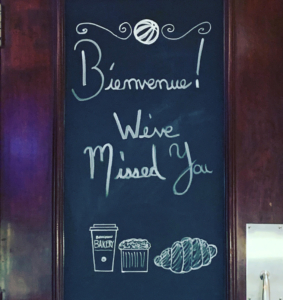 Bienvenue!
We've
Missed You
BAKERY